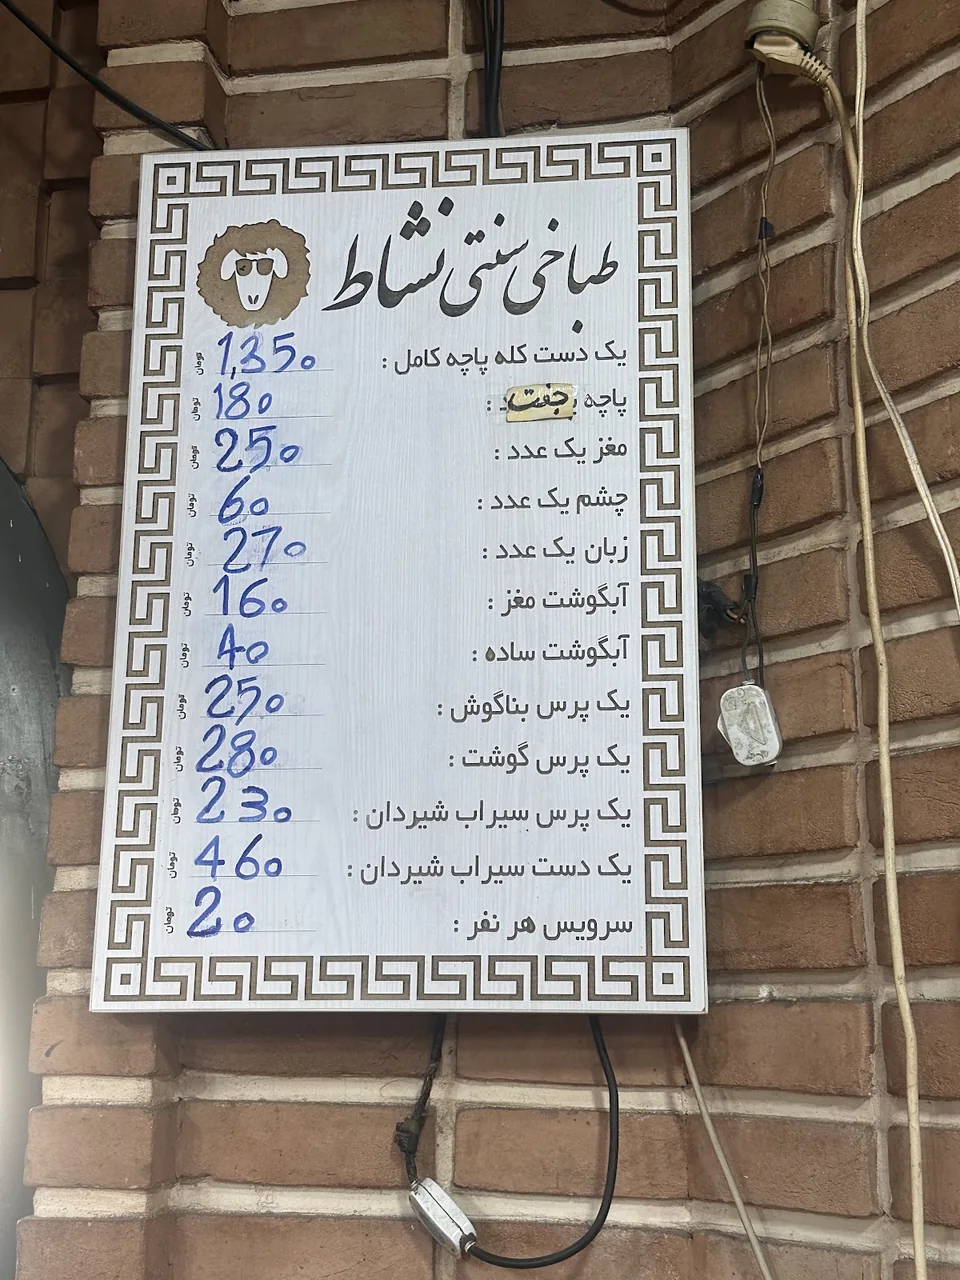 طباخی سنتی نشاط
یک دست کله پاچه کامل : 1,350 تومان
پاچه جفت : 180 تومان
مغز یک عدد : 250 تومان
چشم یک عدد : 60 تومان
زبان یک عدد : 270 تومان
آبگوشت مغز : 160 تومان
آبگوشت ساده : 40 تومان
یک پرس بناگوش : 250 تومان
یک پرس گوشت : 280 تومان
یک پرس سیراب شیردان : 230 تومان
یک دست سیراب شیردان : 460 تومان
سرویس هر نفر : 20 تومان